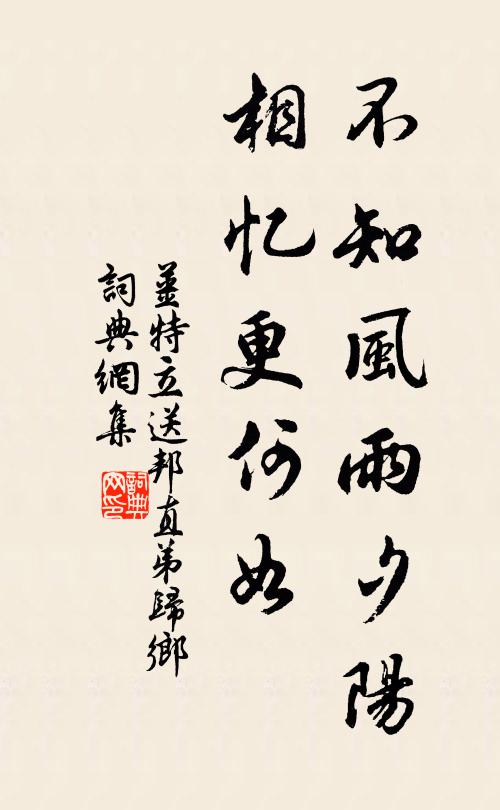 不知風雨夕陽
相忆更何如
薑特立送邦直弟歸鄉
詞典網集
詞典
网印